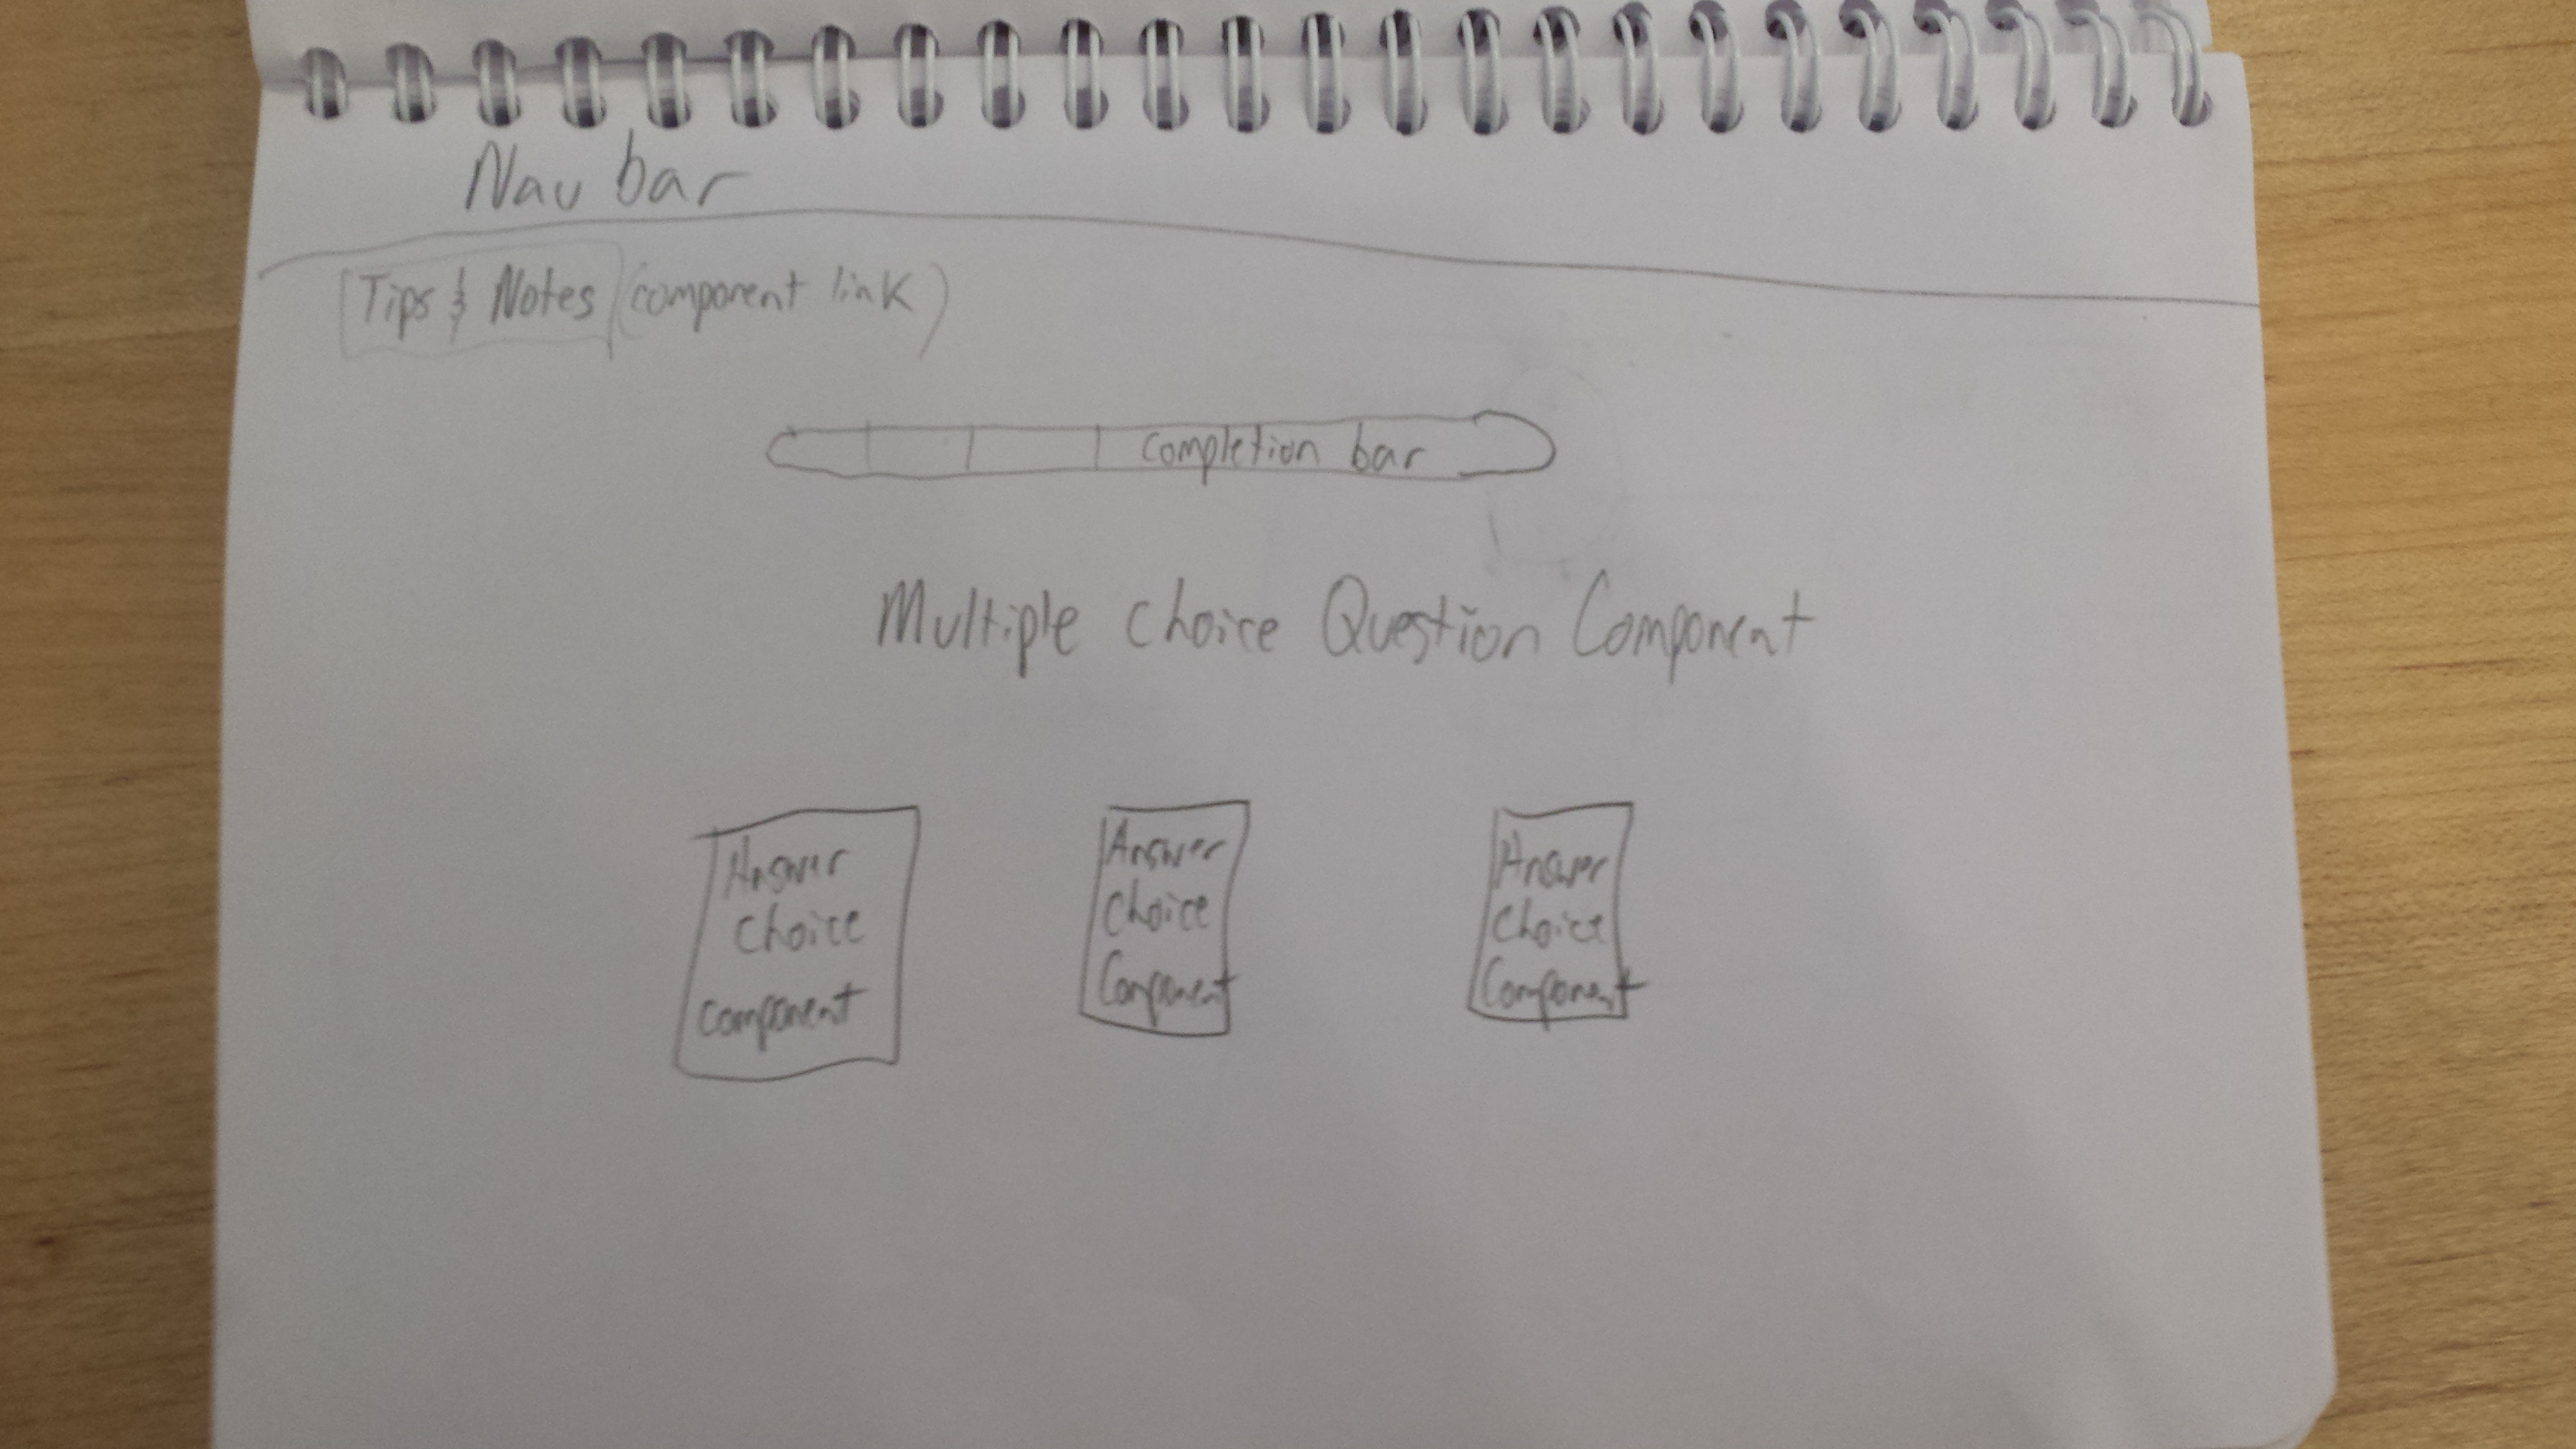 Nav bar
Tips & Notes (component link)
completion bar
Multiple choice Question Component
Answer
choice
component
Answer
choice
Component
Answer
choice
Component